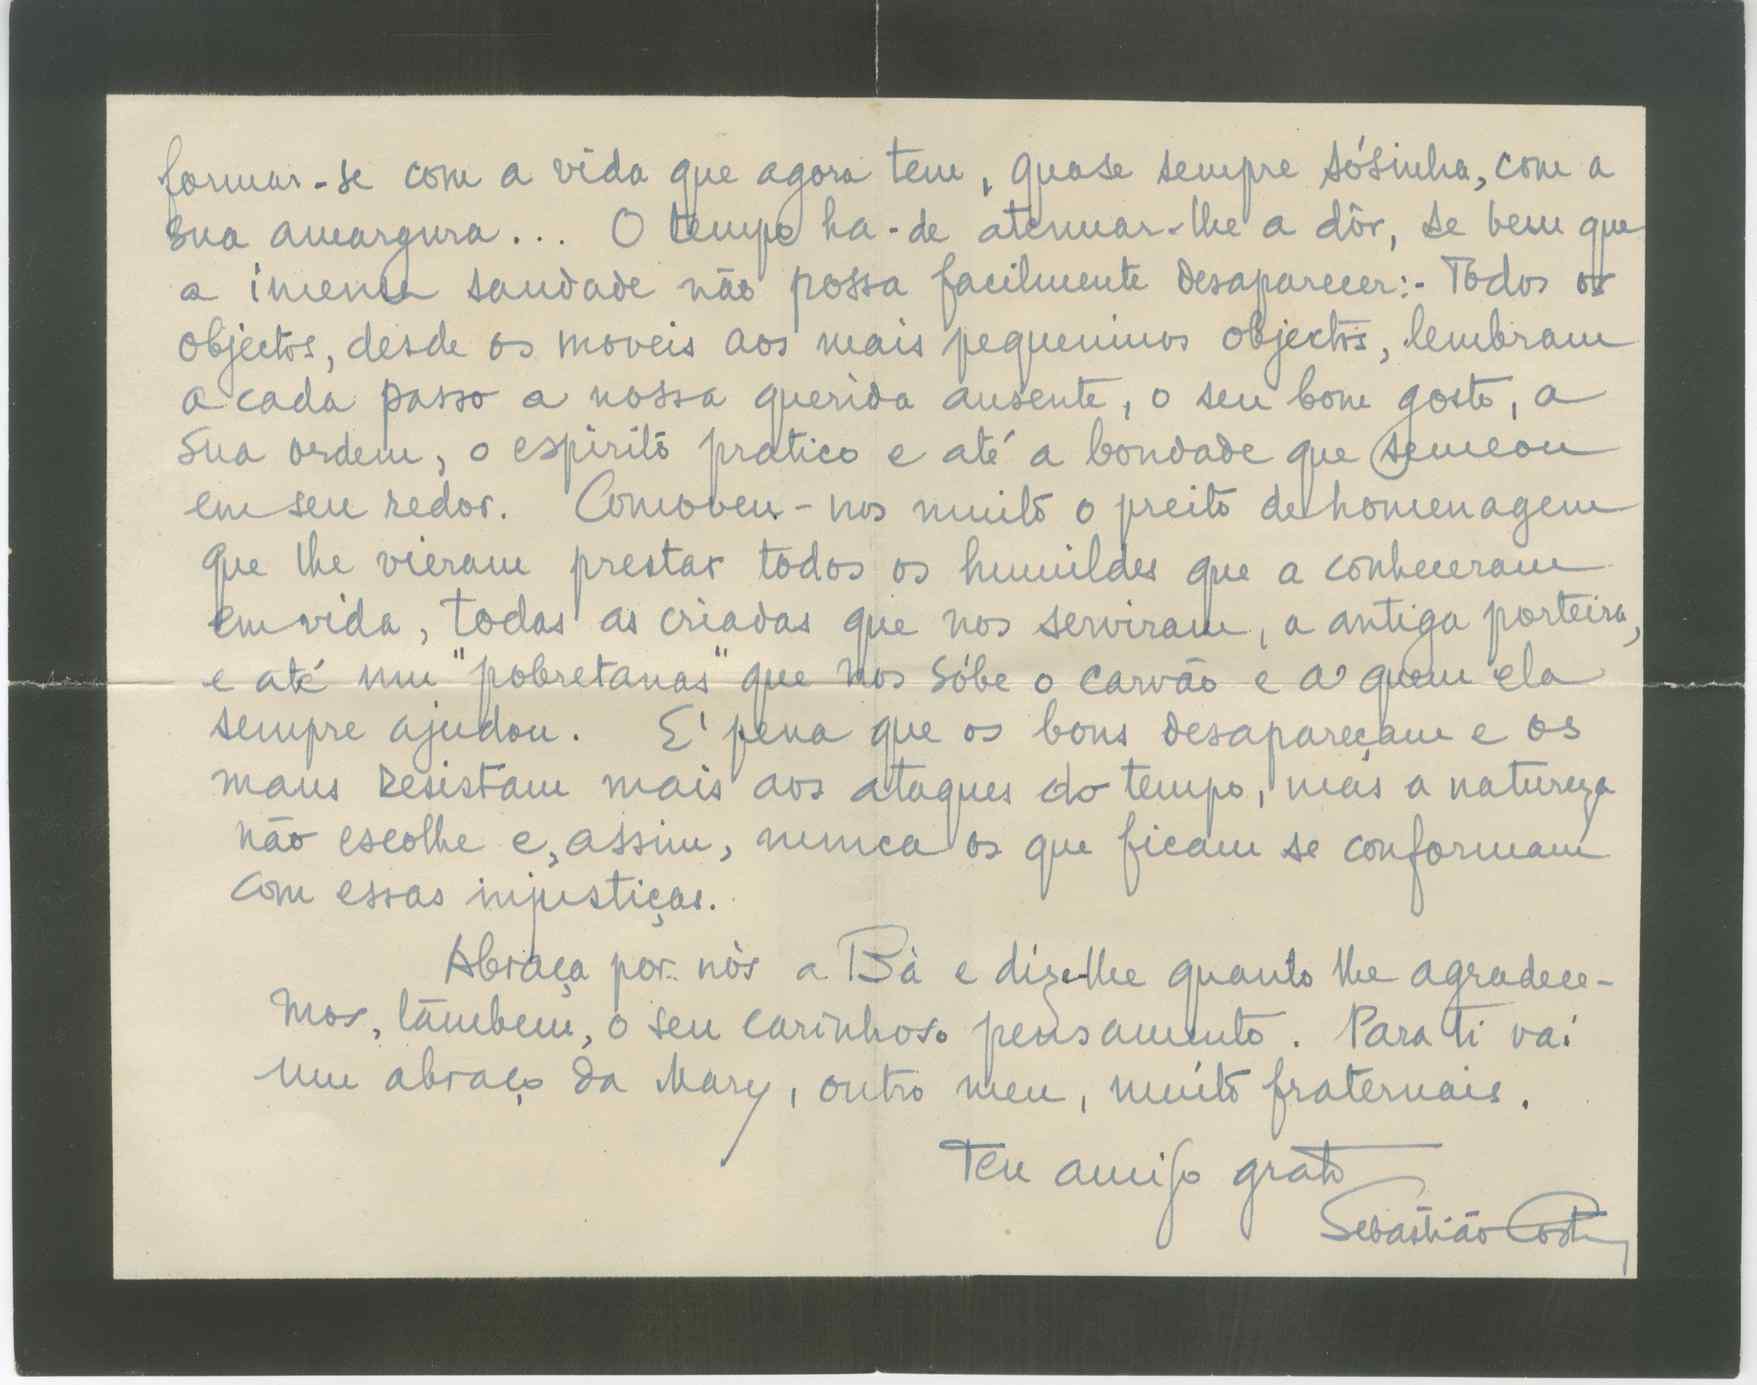 formar-se com a vida que agora tem, quase sempre sósinha, com a
sua amargura... O tempo ha-de atenuar-lhe a dôr, se bem que
a imensa saudade não possa facilmente desaparecer:- Todos os
objectos, desde os moveis aos mais pequeninos objectos, lembram
a cada passo a nossa querida ausente, o seu bom gosto, a
sua ordem, o espirito pratico e até a bondade que semeou
em seu redor. Comoveu-nos muito o preito de homenagem
que lhe vieram prestar todos os humildes que a conheceram
em vida, todas as criadas que nos serviram, a antiga porteira,
e até um "pobretanas" que nos sóbe o carvão e a quem ela
sempre ajudou. E' pena que os bons desapareçam e os
maus resistam mais aos ataques do tempo, mas a natureza
não escolhe e, assim, nunca os que ficam se conformam
com essas injustiças.
Abraça por nòs a Bà e dize-lhe quanto lhe agradece-
mos, tãmbem, o seu carinhoso pensamento. Para ti vai
um abraço da Mary, outro meu, muito fraternais.
Teu amigo grato
Sebastião Costa